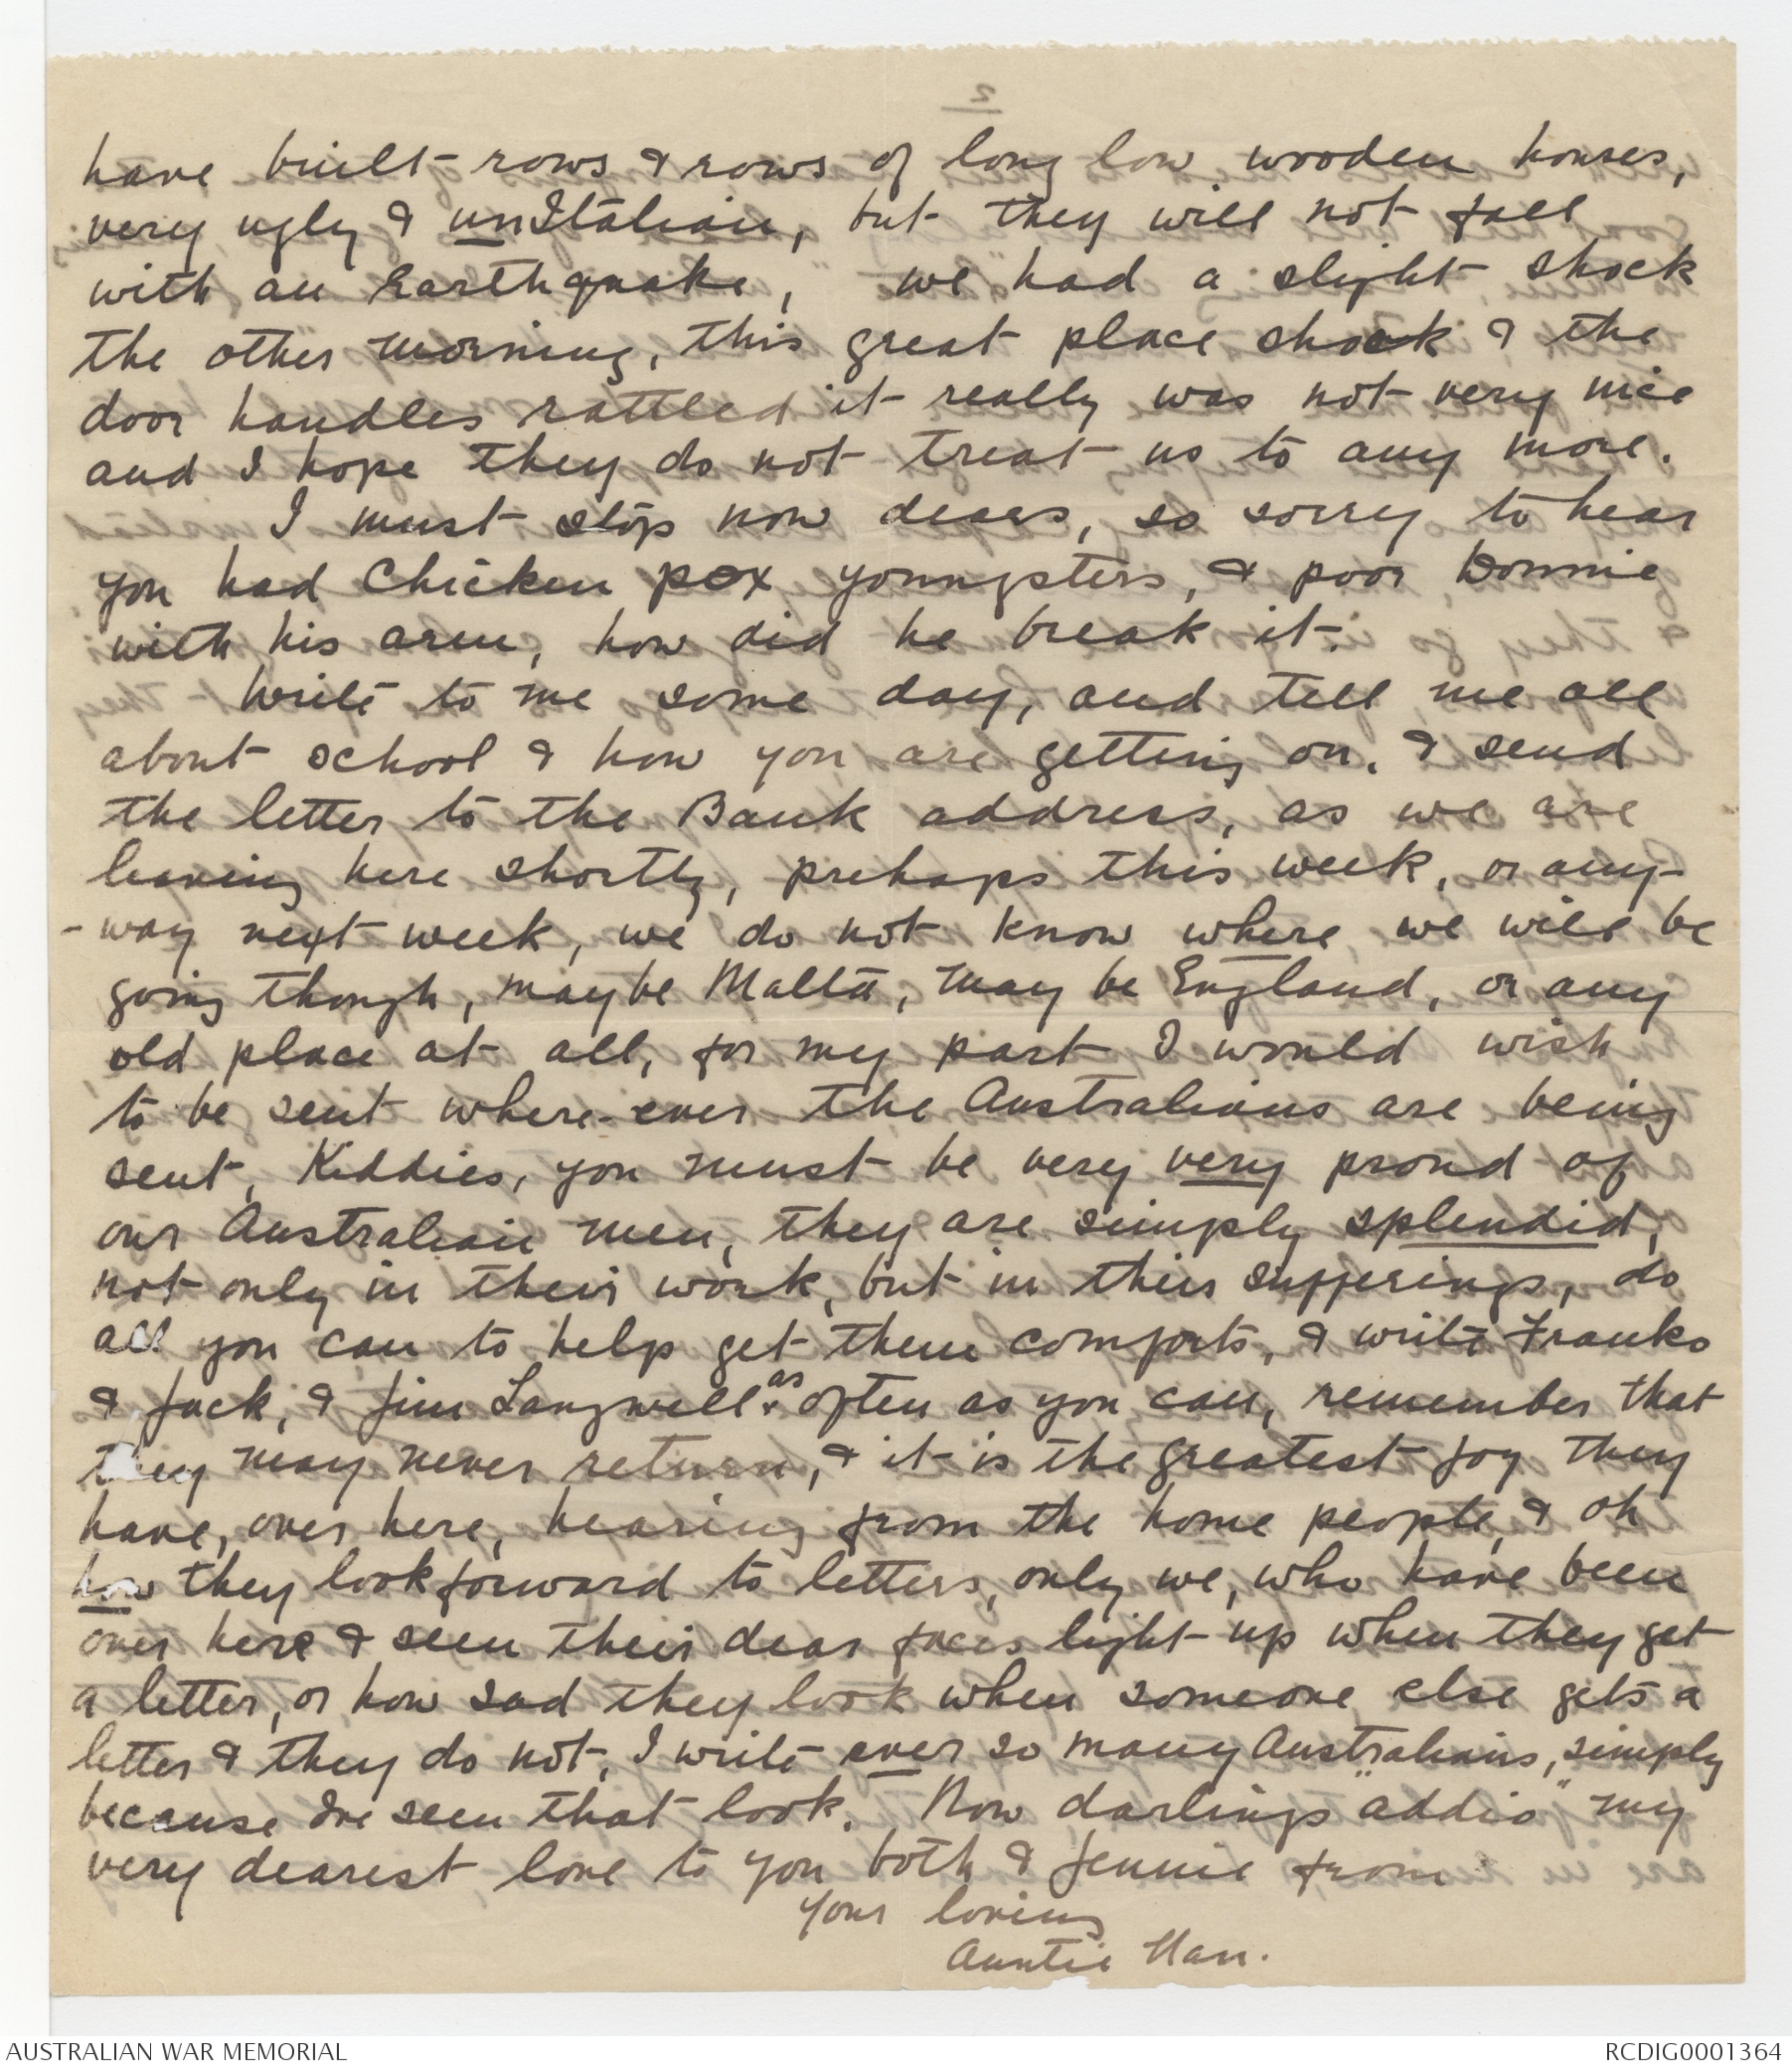 have built rows & rows of long low wooden houses,
very ugly & unItalian, but they will not fall
with an Earthquake, we had a slight shock
the other morning, this great place shook & the
door handles rattled it really was not very nice
and I hope they do not treat us to any more.
I must stop now dears, so sorry to hear
you had Chicken pox youngsters, & poor Donnie
with his arm, how did he break it.
Write to me some day, and tell me all
about school & how you are getting on, & send
the letter to the Bank address, as we are
leaving here shortly, prehaps this week, or any-
-way next week, we do not know where we will be
going though, maybe Malta, may be England, or any
old place at all, for my part I would wish
to be sent where-ever the Australians are being
sent, Kiddies, you must be very very proud of
our Australian men, they are simply splendid,
not only in their work, but in their sufferings, do
all you can to help get them comforts, & write Franks
& Jack, & Jim Langwell as often as you can, remember that
they may never return, & it is the greatest joy they
have, over here, hearing from the home people, & oh
how they look forward to letters, only we, who have been
over here & seen their dear faces light up when they get
a letter, or how sad they look when someone else gets a
letter & they do not, I write ever so many Australians, simply
because Ive seen that look. Now darlings "addio" my
very dearest love to you both & Jennie from
Your loving
Auntie Nan.
AUSTRALIAN WAR MEMORIAL
RCDIG0001364